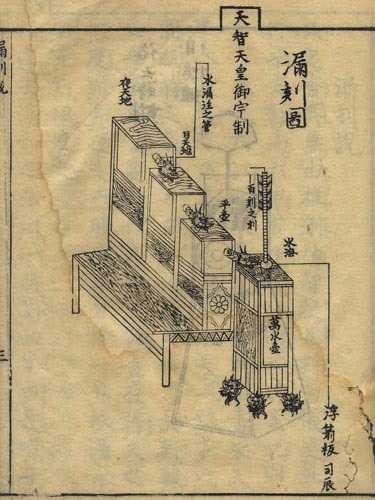 漏刻圖
天智天皇御宇制
水注之管
夜天池
日天池
平壺
百刻之刻
水海
萬水壺
浮箭板 司辰
漏刻説
三